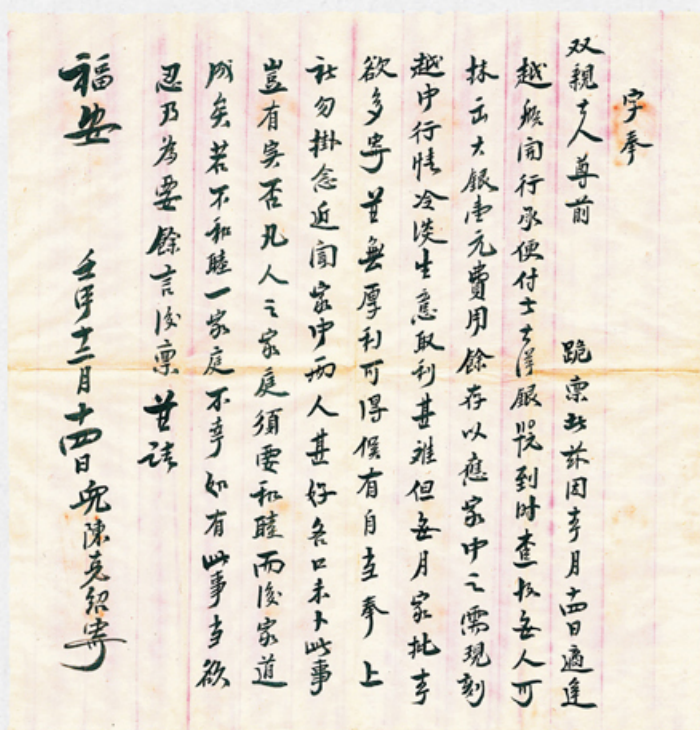 字奉
双親大人尊前 跪禀者茲因本月十四日適逢
越 閩行承便付去大洋銀 到时查收每人可
抹出大銀壹元費用餘存以應家中之需現刻
越中行情冷淡生意取利甚难但每月家批本
欲多寄甘無厚利可得候有自当奉上
祈勿掛念近聞家中两人甚好各口未卜此事
豈有实否凡人之家庭須要和睦而後家道
成矣若不和睦一家庭不幸如有此事当欲
忍乃為要餘言後禀 甘請
福安 壬申十二月十四日兒陳克紹寄